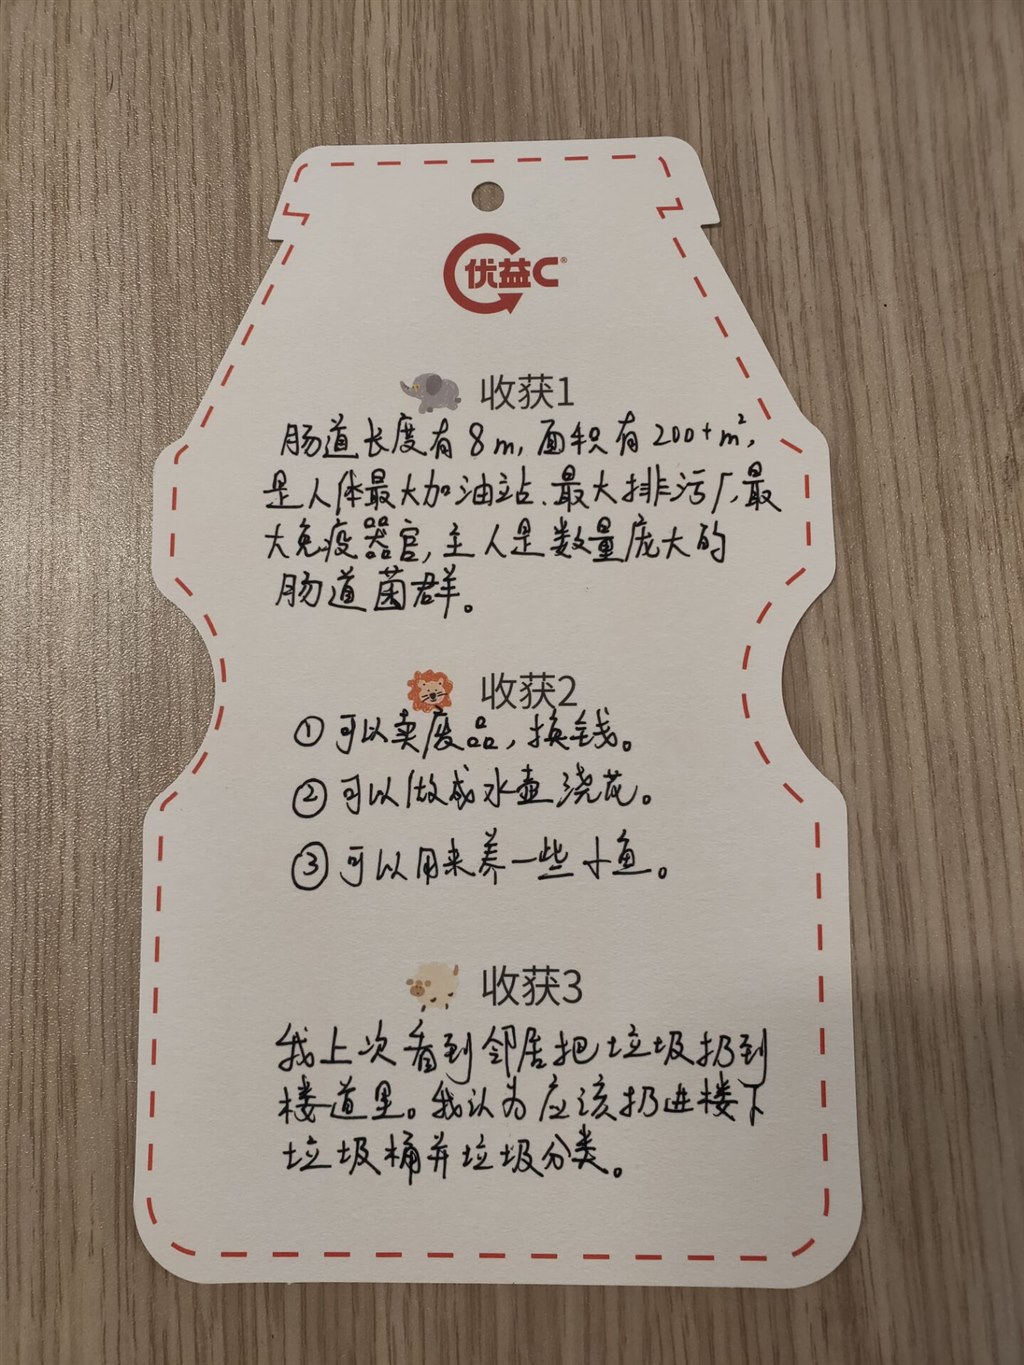 优益C®
收获1
肠道长度有8m,面积有200+m²,
是人体最大加油站、最大排污厂,最
大免疫器官,主人是数量庞大的
肠道菌群。
收获2
①可以卖废品,换钱。
②可以做成水壶浇花。
③可以用来养一些小鱼。
收获3
我上次看到邻居把垃圾扔到
楼道里。我认为应该扔进楼下
垃圾桶并垃圾分类。